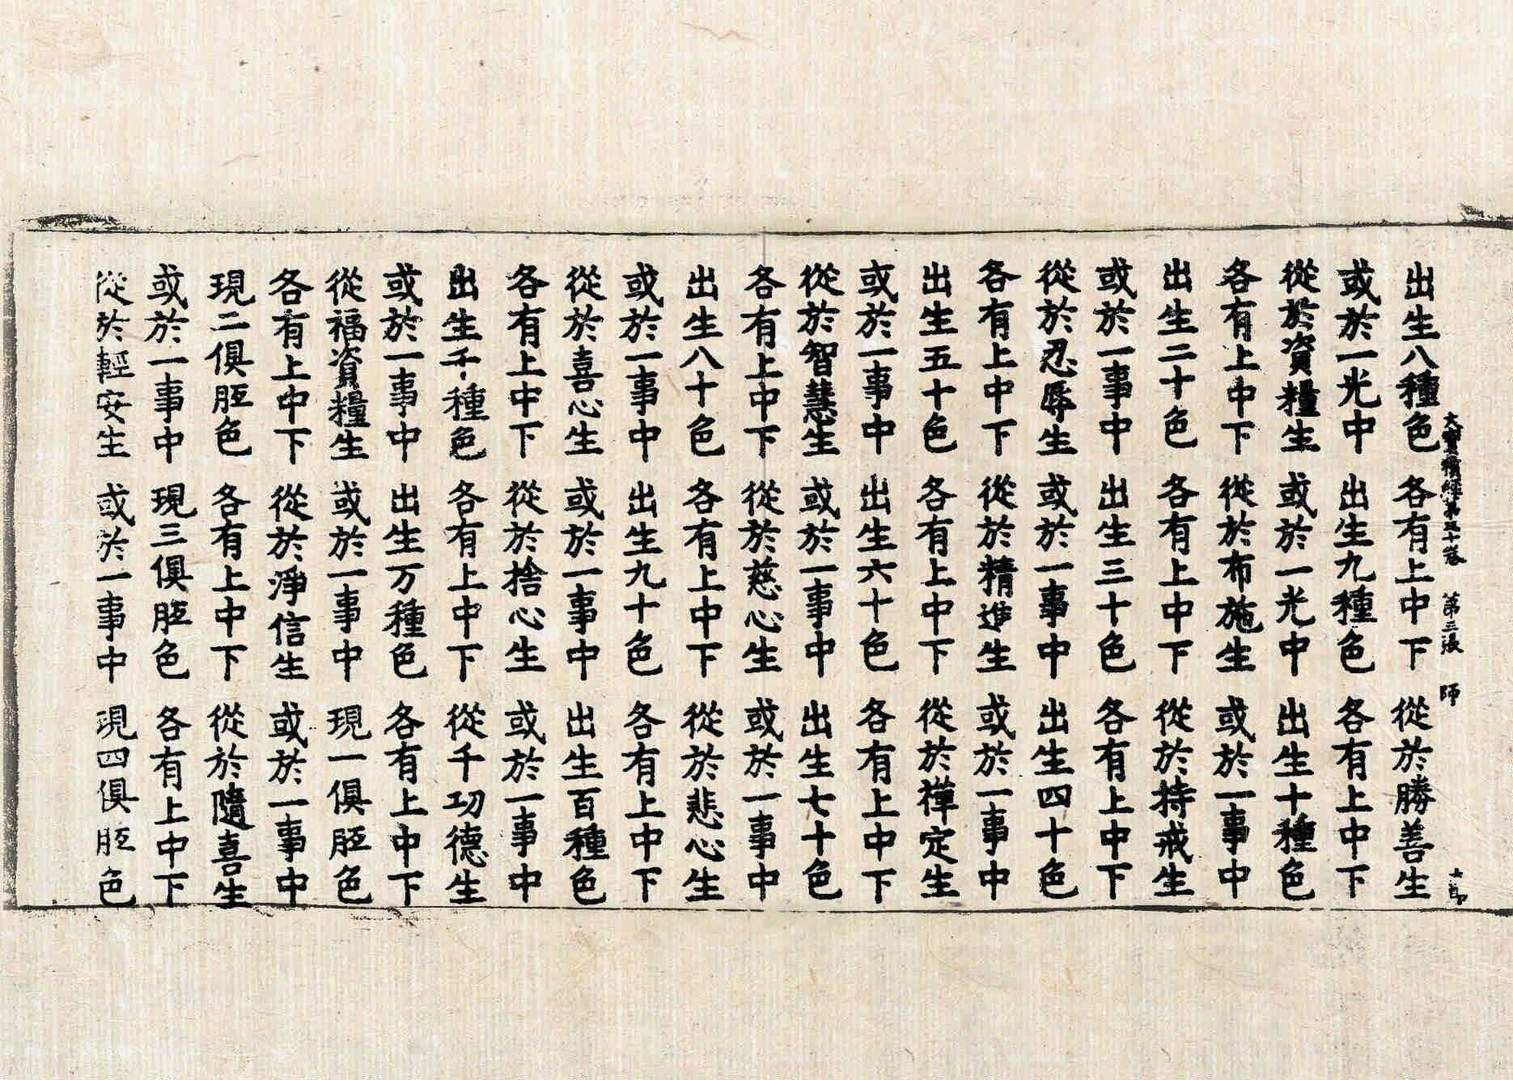 大寶積經第三十卷 第三張 師
出生八種色 各有上中下 從於勝善生
或於一光中 出生九種色 各有上中下
從於資糧生 或於一光中 出生十種色
各有上中下 從於布施生 或於一事中
出生二十色 各有上中下 從於持戒生
或於一事中 出生三十色 各有上中下
從於忍辱生 或於一事中 出生四十色
各有上中下 從於精進生 或於一事中
出生五十色 各有上中下 從於禪定生
或於一事中 出生六十色 各有上中下
從於智慧生 或於一事中 出生七十色
各有上中下 從於慈心生 或於一事中
出生八十色 各有上中下 從於悲心生
或於一事中 出生九十色 各有上中下
從於喜心生 或於一事中 出生百種色
各有上中下 從於捨心生 或於一事中
出生千種色 各有上中下 從千功德生
或於一事中 出生万種色 各有上中下
從福資糧生 或於一事中 現一俱胝色
各有上中下 從於淨信生 或於一事中
現二俱胝色 各有上中下 從於隨喜生
或於一事中 現三俱胝色 各有上中下
從於輕安生 或於一事中 現四俱胝色